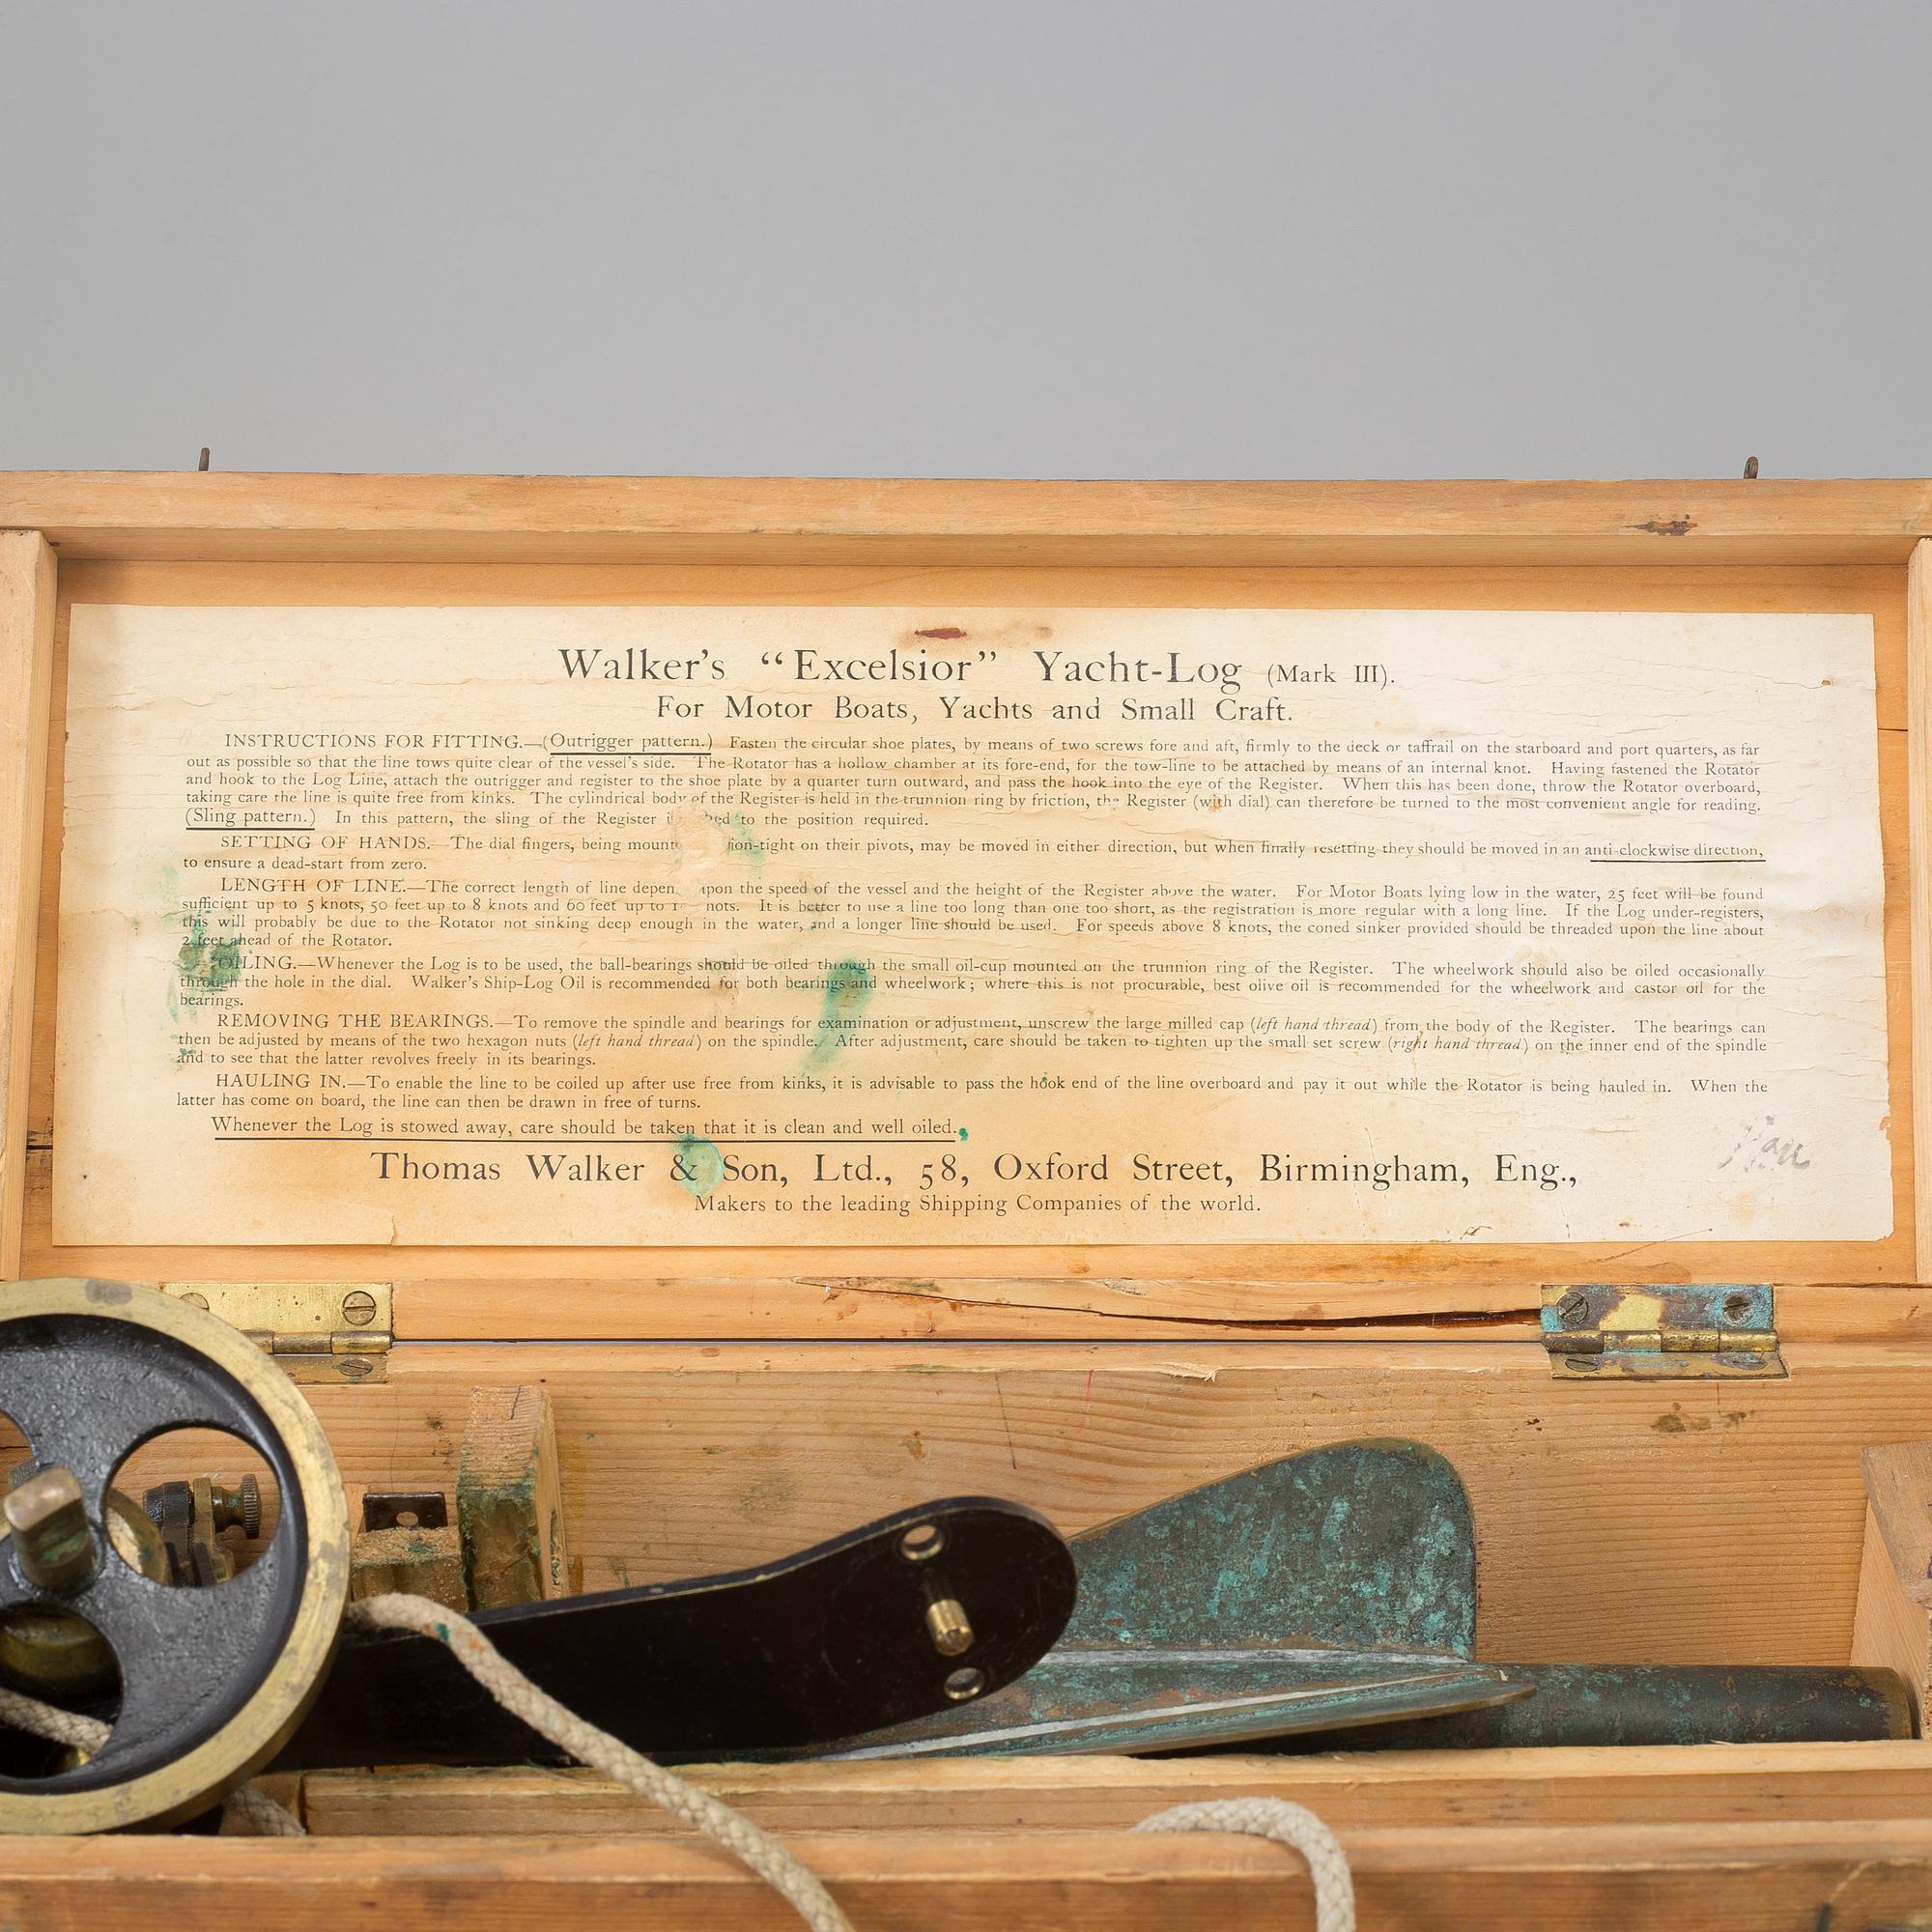 Walker's "Excelsior" Yacht-Log (Mark III).
For Motor Boats, Yachts and Small Craft.
INSTRUCTIONS FOR FITTING.—(Outrigger pattern.) Fasten the circular shoe plates, by means of two screws fore and aft, firmly to the deck or taffrail on the starboard and port quarters, as far
out as possible so that the line tows quite clear of the vessel's side. The Rotator has a hollow chamber at its fore-end, for the tow-line to be attached by means of an internal knot. Having fastened the Rotator
and hook to the Log Line, attach the outrigger and register to the shoe plate by a quarter turn outward, and pass the hook into the eye of the Register. When this has been done, throw the Rotator overboard,
taking care the line is quite free from kinks. The cylindrical body of the Register is held in the trunnion ring by friction, the Register (with dial) can therefore be turned to the most convenient angle for reading.
(Sling pattern.) In this pattern, the sling of the Register to the position required.
SETTING OF HANDS.—The dial fingers, being on their pivots, may be moved in either direction, but when finally resetting they should be moved in an anti-clockwise direction,
to ensure a dead-start from zero.
LENGTH OF LINE.—The correct length of line upon the speed of the vessel and the height of the Register above the water. For Motor Boats lying low in the water, 25 feet will be found
sufficient up to 5 knots, 50 feet up to 8 knots and 60 feet up to It is better to use a line too long than one too short, as the registration is more regular with a long line. If the Log under-registers,
this will probably be due to the Rotator not sinking deep enough in the water, and a longer line should be used. For speeds above 8 knots, the coned sinker provided should be threaded upon the line about
2 feet ahead of the Rotator.
OILING.—Whenever the Log is to be used, the ball-bearings should be oiled through the small oil-cup mounted on the trunnion ring of the Register. The wheelwork should also be oiled occasionally
through the hole in the dial. Walker's Ship-Log Oil is recommended for both bearings and wheelwork; where this is not procurable, best olive oil is recommended for the wheelwork and castor oil for the
bearings.
REMOVING THE BEARINGS.—To remove the spindle and bearings for examination or adjustment, unscrew the large milled cap (left hand thread) from the body of the Register. The bearings can
then be adjusted by means of the two hexagon nuts (left hand thread) on the spindle. After adjustment, care should be taken to tighten up the small set screw (right hand thread) on the inner end of the spindle
and to see that the latter revolves freely in its bearings.
HAULING IN.—To enable the line to be coiled up after use free from kinks, it is advisable to pass the hook end of the line overboard and pay it out while the Rotator is being hauled in. When the
latter has come on board, the line can then be drawn in free of turns.
Whenever the Log is stowed away, care should be taken that it is clean and well oiled.
Thomas Walker & Son, Ltd., 58, Oxford Street, Birmingham, Eng.,
Makers to the leading Shipping Companies of the world.